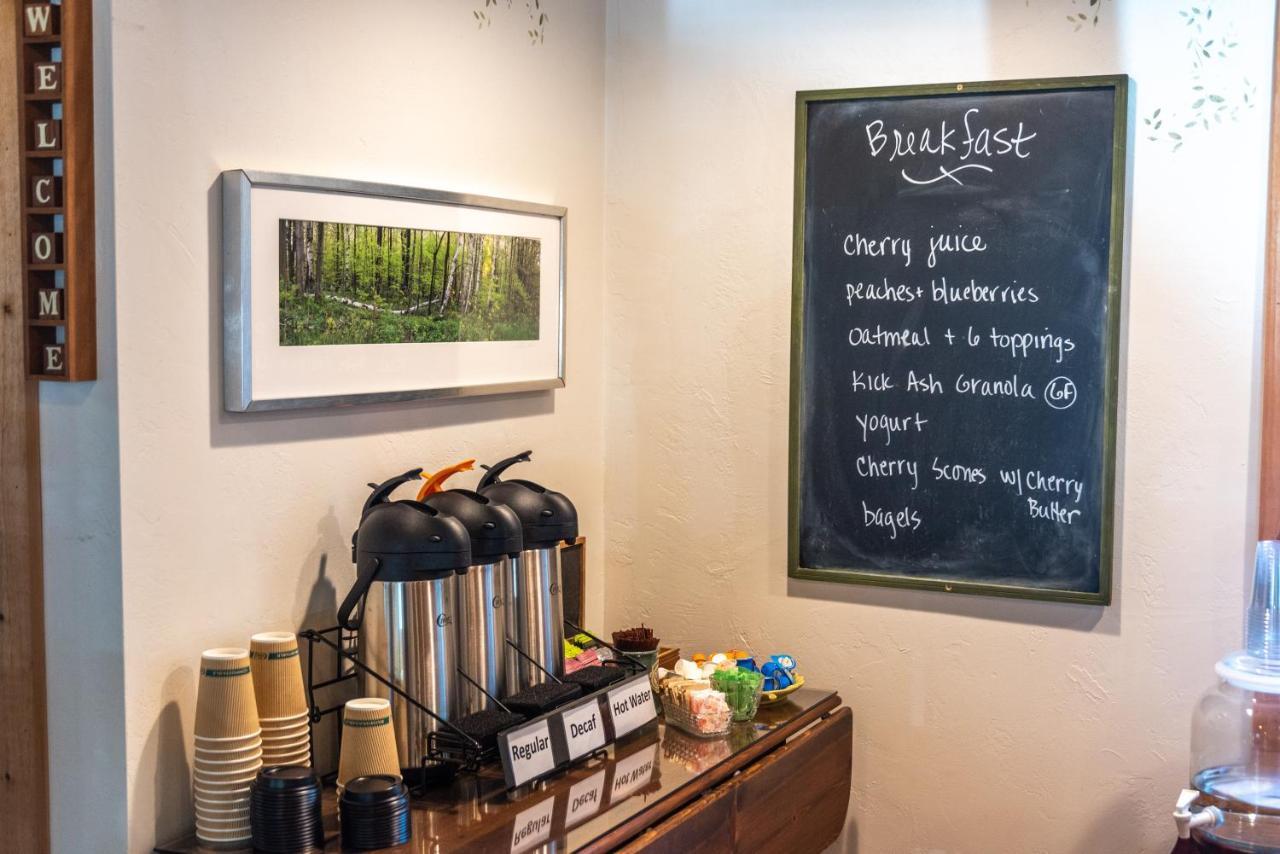 WELCOME
Breakfast
Cherry juice
peaches + blueberries
Oatmeal + 6 toppings
Kick Ash Granola GF
yogurt
Cherry Scones w/ Cherry Butter
bagels
Regular
Decaf
Hot Water
Regular
Decaf
Hot Water